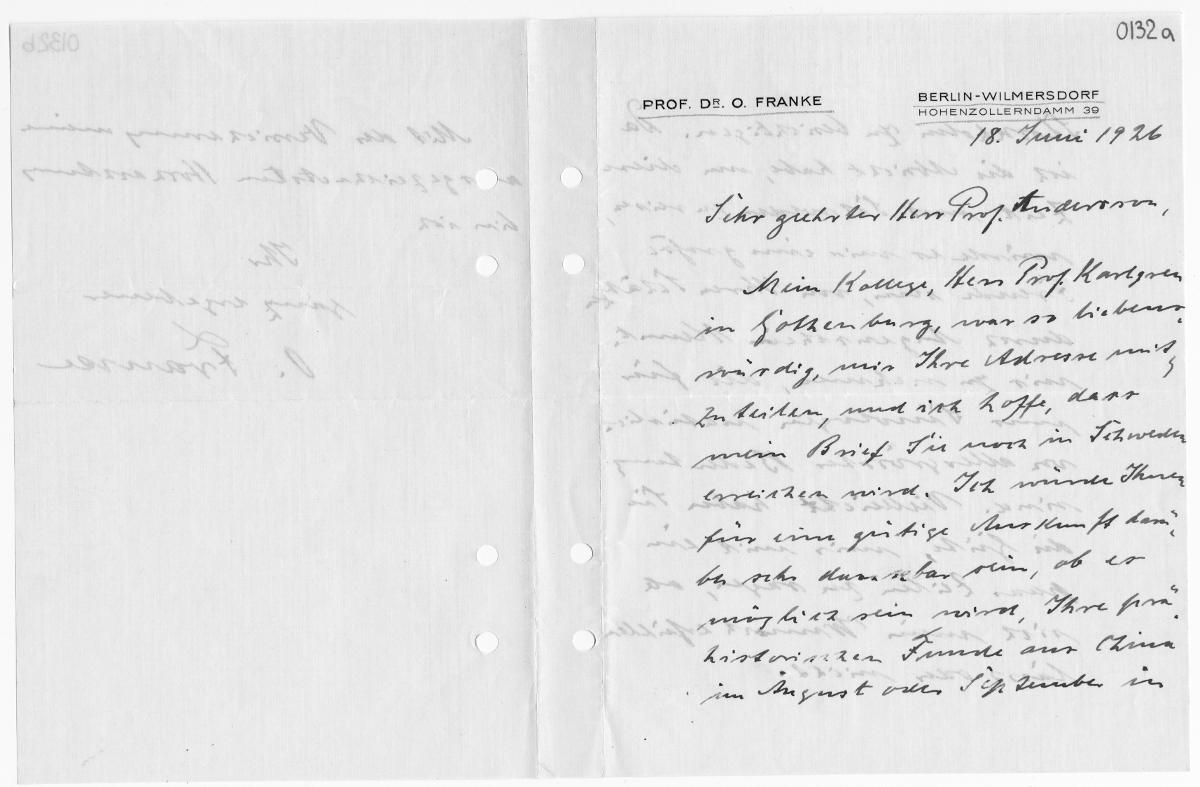 0132a
PROF. DR. O. FRANKE
BERLIN-WILMERSDORF
HOHENZOLLERNDAMM 39
18. Juni 1926
Sehr geehrter Herr Prof. Andersson,
Mein Kollege, Herr Prof. Karlgren
in Gothenburg, war so liebens-
würdig, mir Ihre Adresse mit-
zuteilen, und ich hoffe, dass
mein Brief Sie noch in Schweden
erreichen wird. Ich würde Ihnen
für eine gütige Auskunft darü-
ber sehr dankbar sein, ob es
möglich sein wird, Ihre prä-
historischen Funde aus China
im August oder September in
0132b
Mit der Versicherung meiner
ausgezeichneten Hochachtung
bin ich
Ihr
ganz ergebener
O. Franke